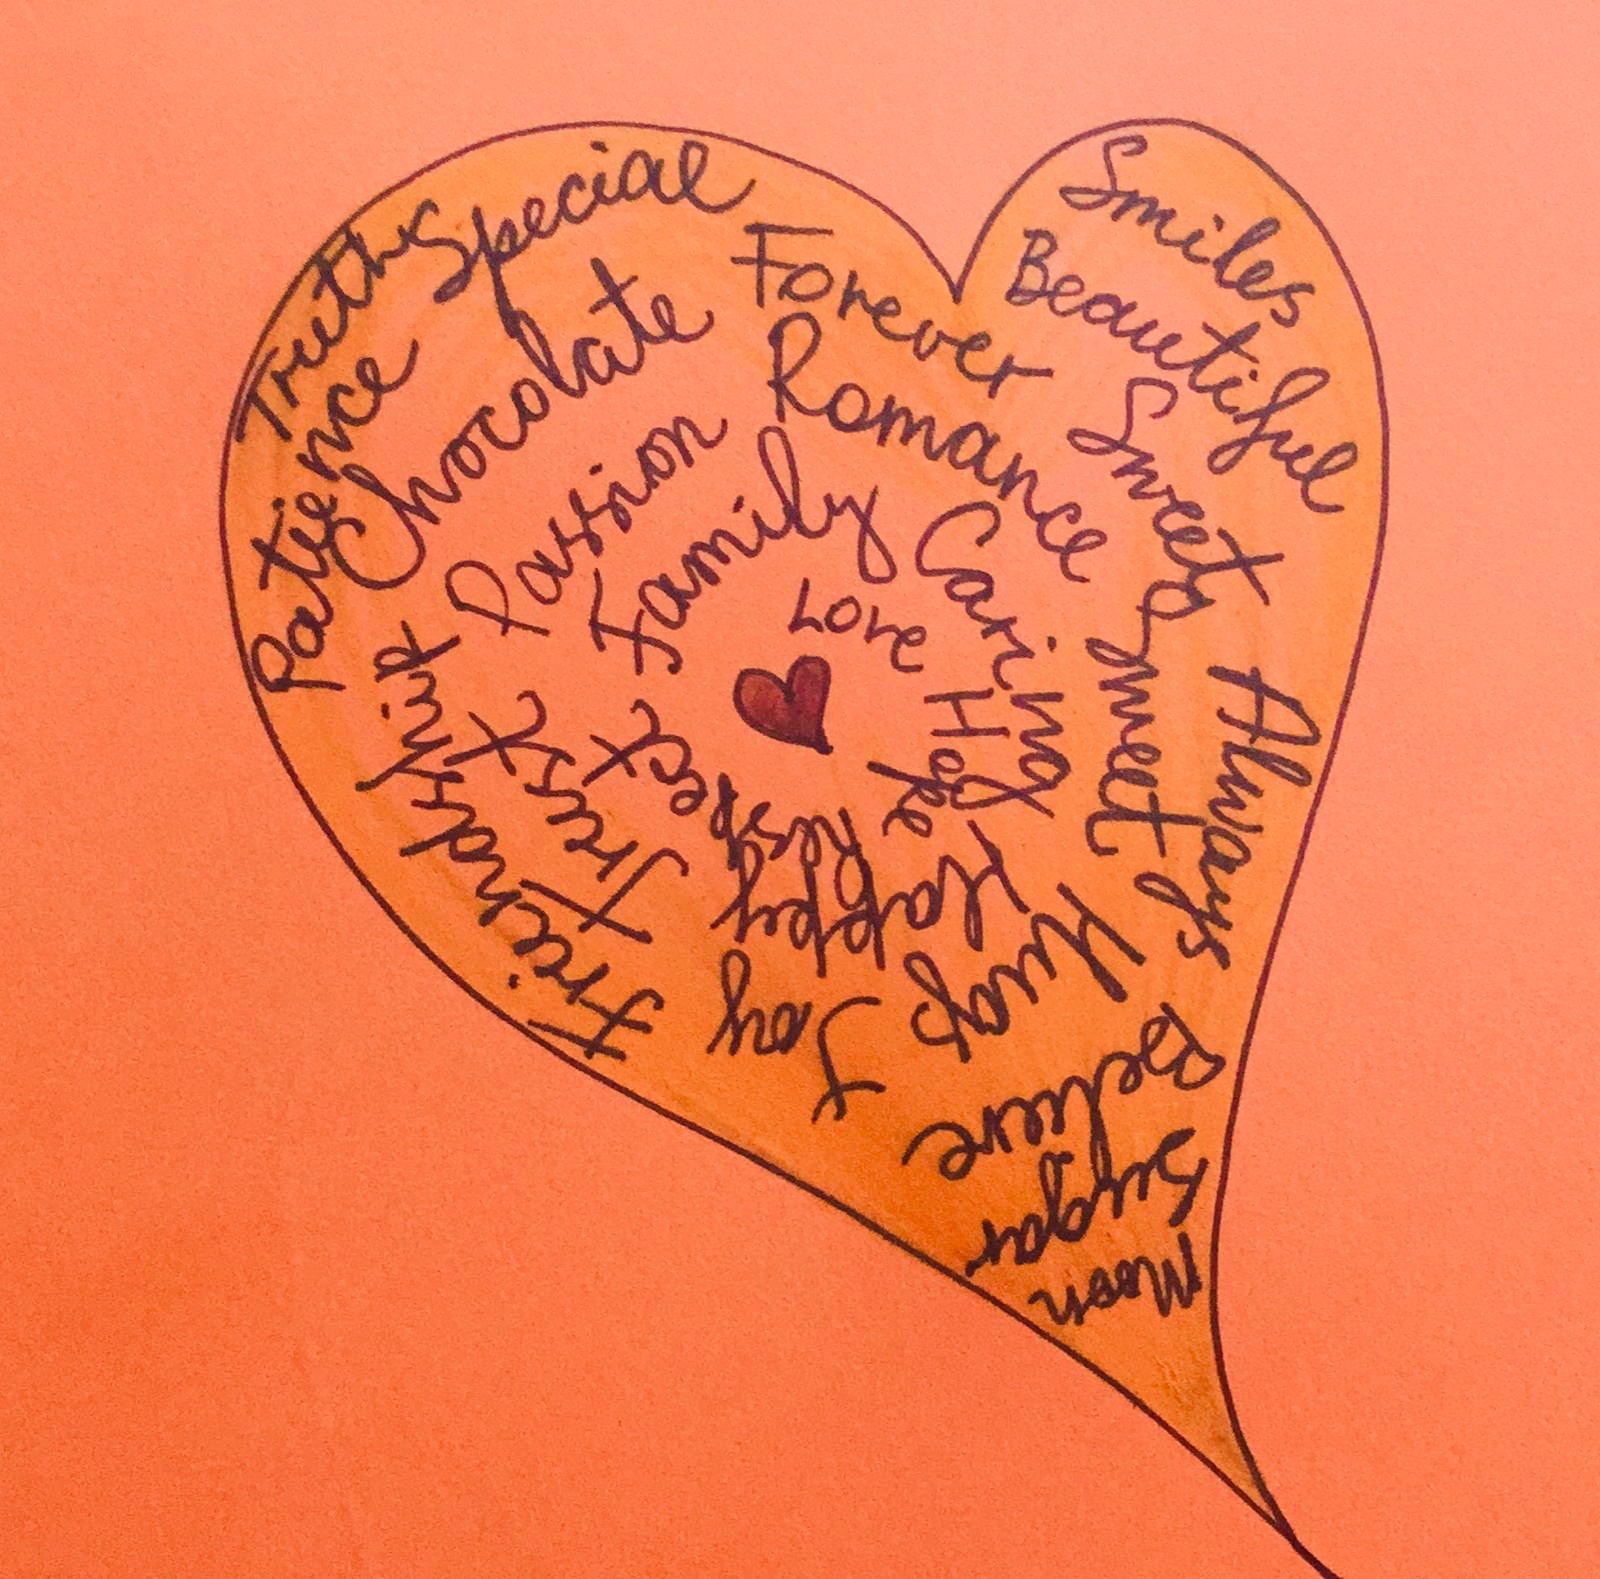 Truth
Special
Smiles
Patience
Chocolate
Forever
Beautiful
Passion
Romance
Sweet
Family
Caring
Love
Hope
Respect
Trust
Friendship
Happy
Always
Hugs
Joy
Believe
Sugar
Moon